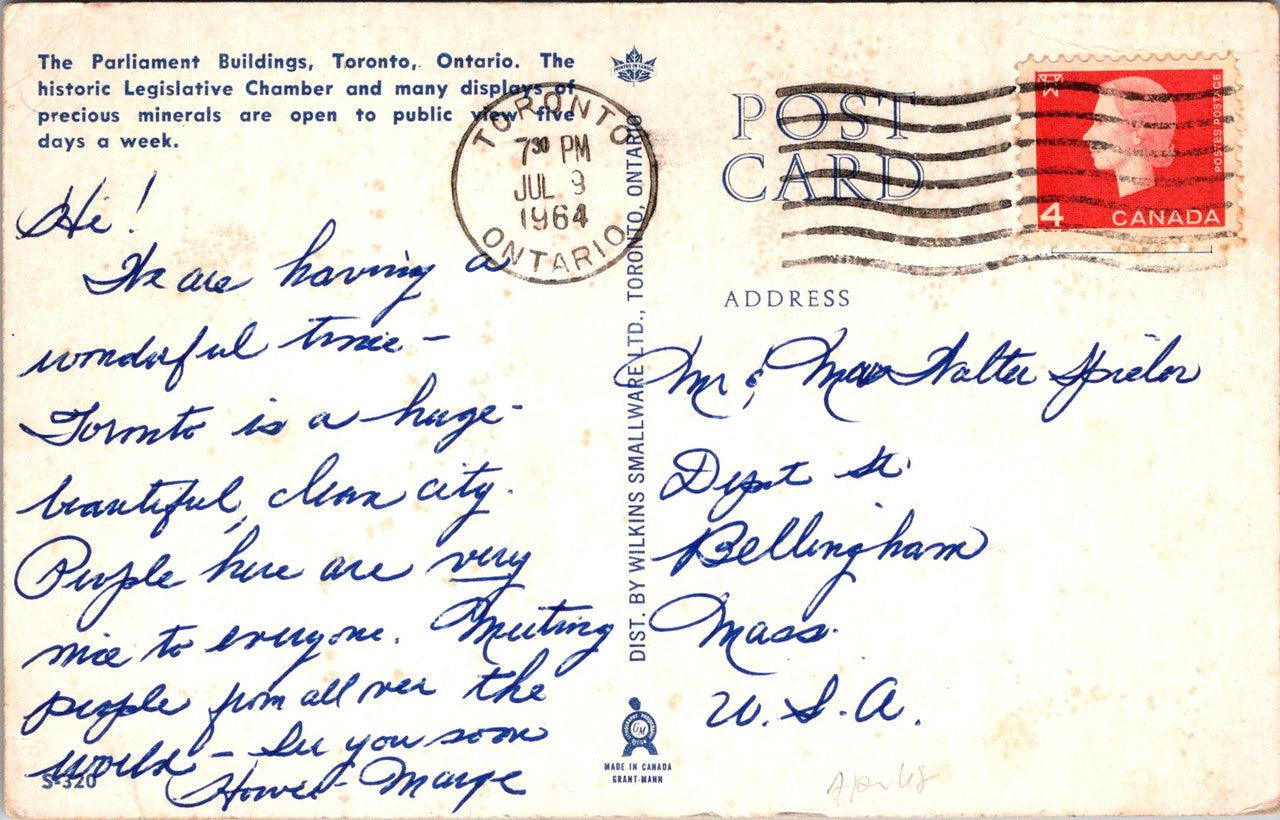 The Parliament Buildings, Toronto, Ontario. The
historic Legislative Chamber and many displays of
precious minerals are open to public view five
days a week.
PRINTED IN CANADA
TORONTO
7³⁰ PM
JUL 9
1964
ONTARIO
POST
CARD
POSTES POSTAGE
4 CANADA
ADDRESS
Hi!
We are having a
wonderful time –
Toronto is a huge -
beautiful, clean city.
People here are very
nice to everyone. Meeting
people from all over the
world – See you soon
Marge
S-320
DIST. BY WILKINS SMALLWARE LTD., TORONTO, ONTARIO
GM
MADE IN CANADA
GRANT-MANN
Mr & Mrs Walter
Dept St.
Bellingham
Mass.
U.S.A.